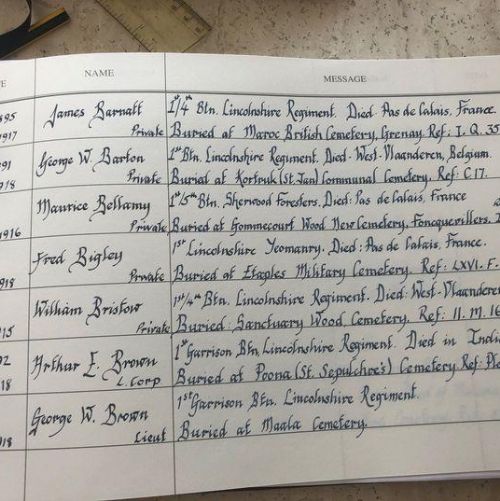 E NAME MESSAGE
895 James Barnatt 1st/4th Btn. Lincolnshire Regiment. Died. Pas de Calais, France.
1917 Private Buried at Maroc British Cemetery, Grenay. Ref: I. Q. 35
891 George W. Barton 1st Btn. Lincolnshire Regiment. Died. West-Vlaanderen, Belgium.
1918 Private Buried at Kortruk (St. Jan) Communal Cemetery. Ref: C 17.
Maurice Bellamy 1st/5th Btn. Sherwood Foresters. Died: Pas de Calais, France
1916 Private Buried at Gommecourt Wood New Cemetery, Foncquevillers.
Fred Bigley 1st Lincolnshire Yeomanry. Died: Pas de Calais, France.
1918 Private Buried at Etaples Military Cemetery. Ref: LXVI. F.
William Bristow 1st/4th Btn. Lincolnshire Regiment. Died. West-Vlaanderen
1915 Private Buried: Sanctuary Wood Cemetery. Ref: II. M. 16
92 Arthur E. Brown 1st Garrison Btn, Lincolnshire Regiment. Died in India
18 L. Corp Buried at Poona (St. Sepulchre's) Cemetery. Ref:
George W. Brown 1st Garrison Btn. Lincolnshire Regiment.
1918 Lieut Buried at Maala Cemetery.